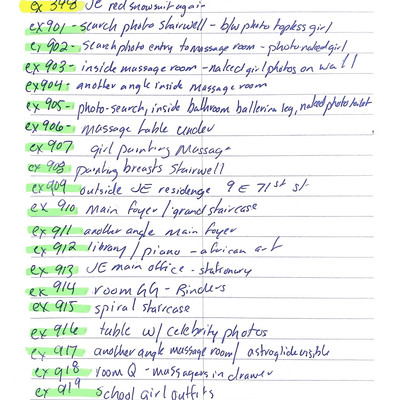 ex 343 JE red snowsuit again
ex901 - search photo stairwell - b/w photo topless girl
ex 902 - search photo entry to massage room - photo naked girl
ex 903 - inside massage room - naked girl photos on wall
ex 904 - another angle inside massage room
ex 905 - photo-search, inside bathroom ballerina leg, naked photo toilet
ex 906 - massage table under
ex 907 girl painting Massage
ex 908 painting breasts stairwell
ex909 outside JE residence 9 E 71st st
ex 910 Main foyer / grand staircase
ex 911 another angle main foyer
ex 912 library / piano - african art
ex 913 JE main office - stationary
ex 914 room GG - Binders
ex 915 spiral staircase
ex 916 table w/ celebrity photos
ex 917 another angle massage room / astroglide visible
ex 918 room Q - massagers in drawer
ex 919 school girl outfits